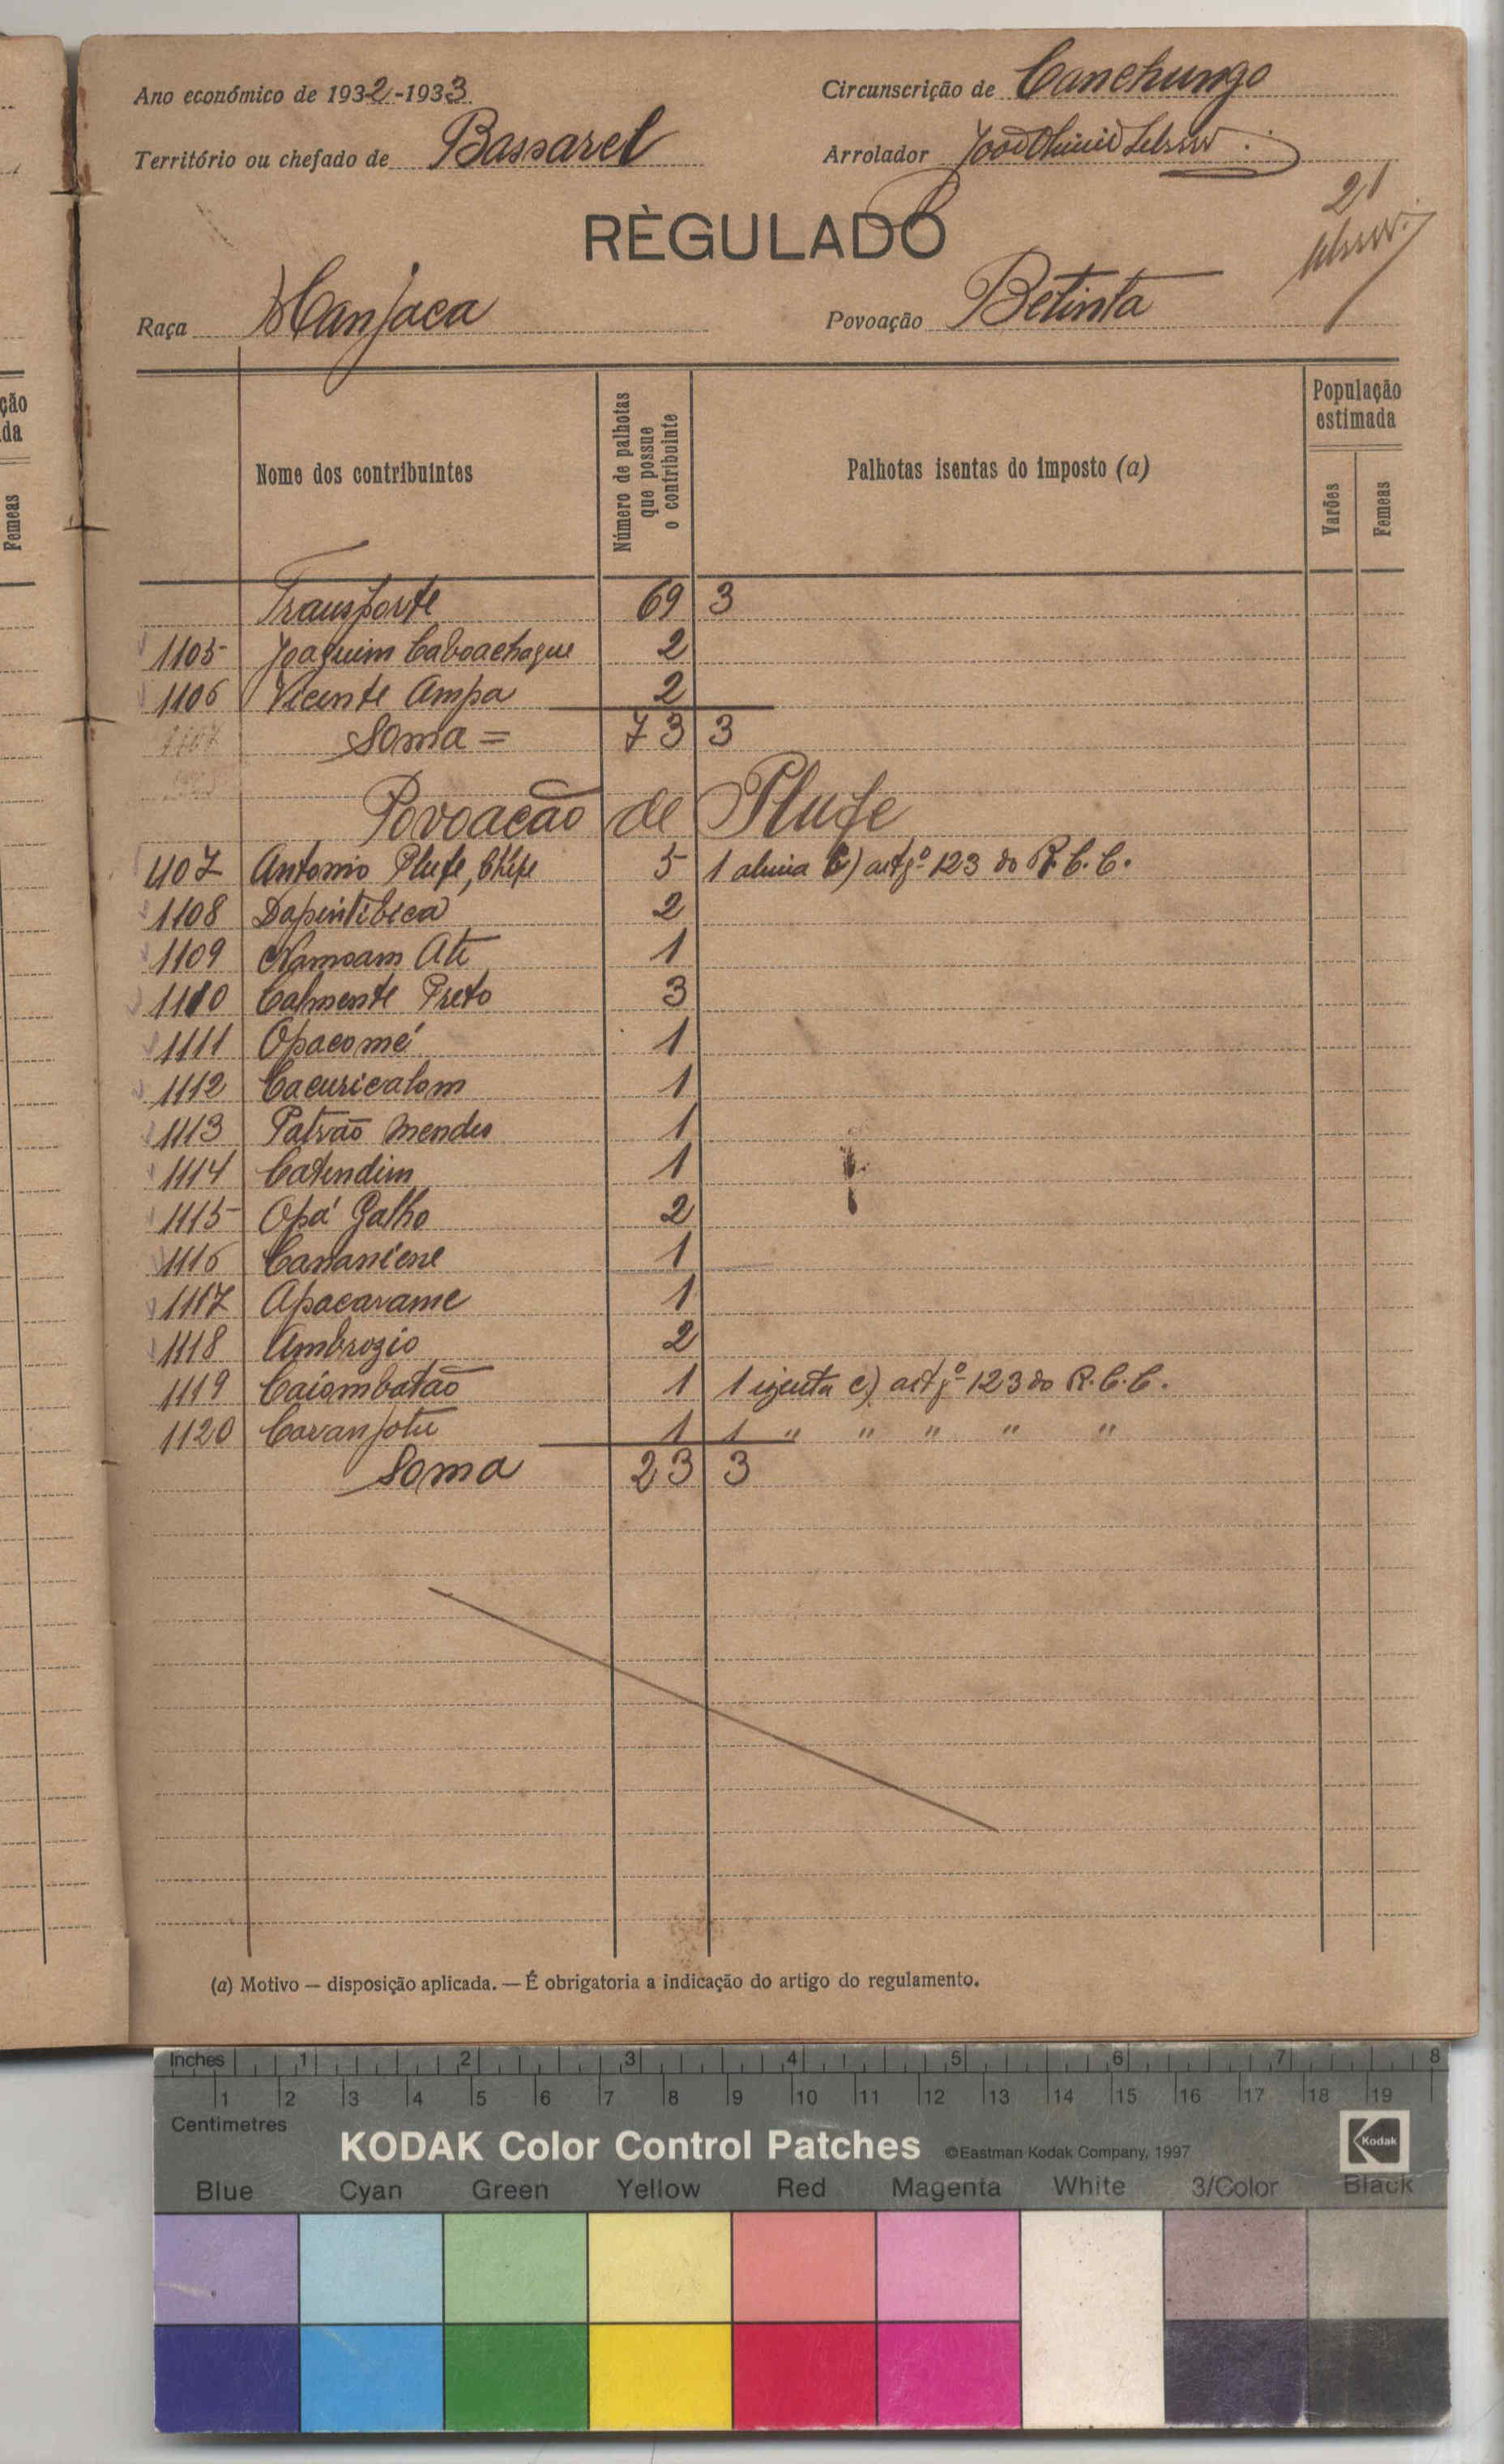 Ano económico de 1932-1933 Circunscrição de Canchungo
Território ou chefado de Bassarel Arrolador
21
RÈGULADO
Raça Manjaca Povoação Betinta
Nome dos contribuintes
Número de palhotas que possue o contribuinte
Palhotas isentas do imposto (a)
População estimada
Varões Femeas
Transporte 69 3
1105 Joaquim Caboachague 2
1106 Vicente Ampa 2
Soma = 73 3
Povoação de Plufe
1107 Antonio Plufe, Chefe 5 1 alinia c) artgº 123 do R.C.C.
1108 Dapintibica 2
1109 Namoam Ate 1
1110 Calmente Preto 3
1111 Opacomé 1
1112 Cacuricalom 1
1113 Patrão Mendes 1
1114 Catendim 1
1115 Opá Galho 2
1116 Cananiene 1
1117 Apacarame 1
1118 Ambrozio 2
1119 Caiombatão 1 1 izenta c) artgº 123 do R.C.C.
1120 Cavanjotu 1 1 " " " " "
Soma 23 3
(a) Motivo — disposição aplicada. — É obrigatoria a indicação do artigo do regulamento.
ção
da
Femeas
Inches 1 2 3 4 5 6 7 8
1 2 3 4 5 6 7 8 9 10 11 12 13 14 15 16 17 18 19
Centimetres
KODAK Color Control Patches ©Eastman Kodak Company, 1997 Kodak
Blue Cyan Green Yellow Red Magenta White 3/Color Black